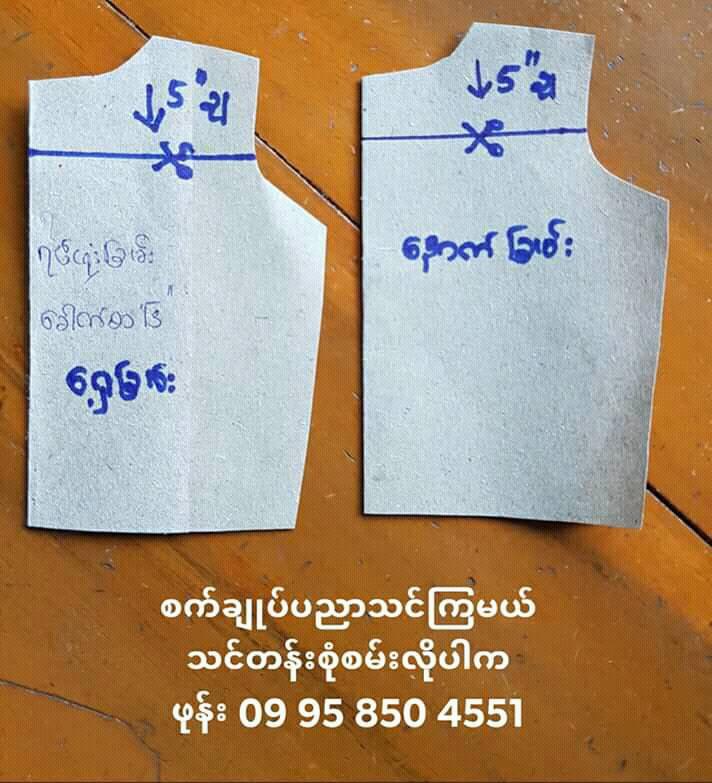 ↓ 5" ချ
ရင်ဖုံးခြမ်း
ရှေ့ခြမ်း
↓ 5" ချ
နောက်ခြမ်း
စက်ချုပ်ပညာသင်ကြမယ်
သင်တန်းစုံစမ်းလိုပါက
ဖုန်း 09 95 850 4551